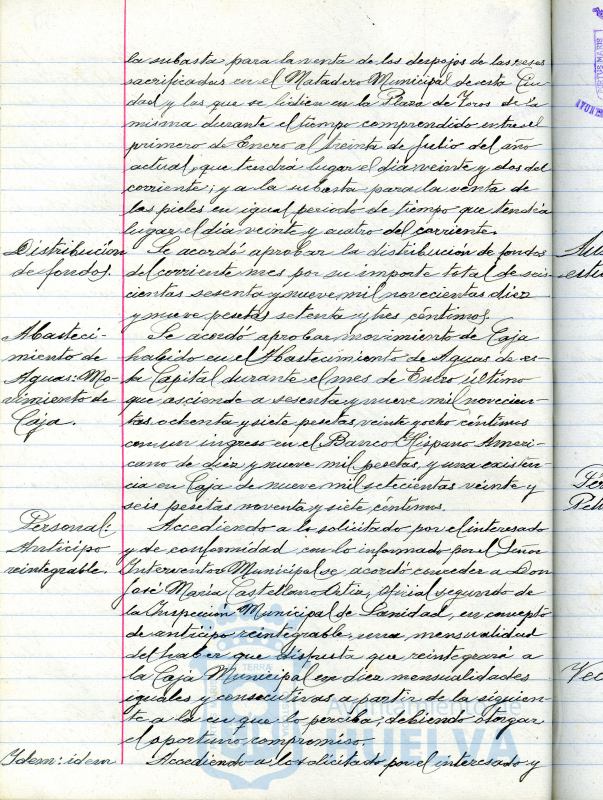 la subasta para la venta de los despojos de las reses
sacrificadas en el Matadero Municipal de esta Ciu-
dad y las que se lidien en la Plaza de Toros de la
misma durante el tiempo comprendido entre el
primero de Enero al treinta de Julio del año
actual, que tendrá lugar el dia veinte y dos del
corriente; y a la subasta para la venta de
las pieles en igual periodo de tiempo que tendrá
lugar el dia veinte y cuatro del corriente.
Distribución
de fondos.
Se acordó aprobar la distribución de fondos
del corriente mes por su importe total de seis-
cientas sesenta y nueve mil novecientas diez
y nueve pesetas setenta y tres céntimos.
Abasteci-
miento de
Aguas: Mo-
vimiento de
Caja.
Se acordó aprobar movimiento de Caja
habido en el Abastecimiento de Aguas de es-
ta Capital durante el mes de Enero último
que asciende a sesenta y nueve mil novecien-
tas ochenta y siete pesetas veinte y ocho céntimos
con un ingreso en el Banco Hispano Ameri-
cano de diez y nueve mil pesetas, y una existen-
cia en Caja de nueve mil setecientas veinte y
seis pesetas noventa y siete céntimos.
Personal:
Anticipo
reintegrable.
Accediendo a lo solicitado por el interesado
y de conformidad con lo informado por el Señor
Interventor Municipal se acordó conceder a Don
José Maria Castellano Ortiz, Oficial segundo de
la Inspección Municipal de Sanidad, en concepto
de anticipo reintegrable, una mensualidad
del haber que disfruta que reintegrará a
la Caja Municipal en diez mensualidades
iguales y consecutivas a partir de la siguien-
te a la en que lo perciba, debiendo otorgar
el oportuno compromiso.
Idem: idem
Accediendo a lo solicitado por el interesado y
TERRA
Ayuntamiento de
HUELVA